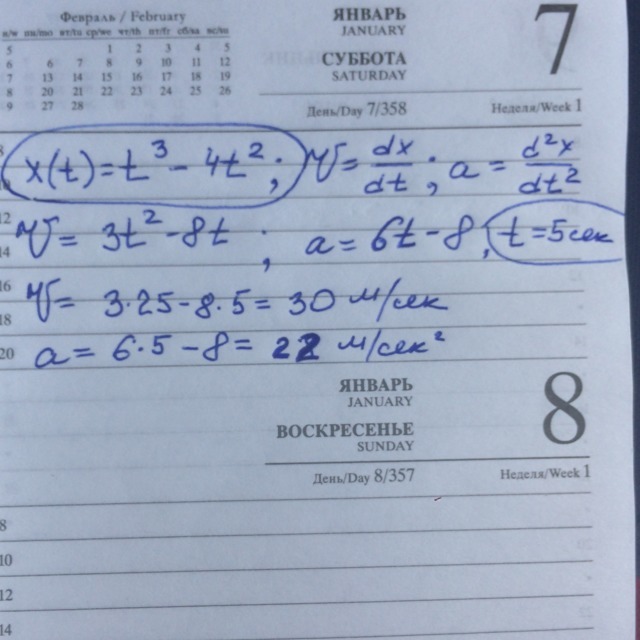 Февраль / February
н/w пн/mo вт/tu ср/we чт/th пт/fr сб/sa вс/su
5 1 2 3 4 5
6 6 7 8 9 10 11 12
7 13 14 15 16 17 18 19
8 20 21 22 23 24 25 26
9 27 28
ЯНВАРЬ
JANUARY
СУББОТА
SATURDAY
7
День/Day 7/358 Неделя/Week 1
8
x(t)=t³-4t²; V=dx/dt; a=d²x/dt²
10
12
V=3t²-8t; a=6t-8, t=5сек
14
16
V=3·25-8·5=30 м/сек
18
20 a=6·5-8=22 м/сек²
ЯНВАРЬ
JANUARY
ВОСКРЕСЕНЬЕ
SUNDAY
8
День/Day 8/357 Неделя/Week 1
8
10
12
14